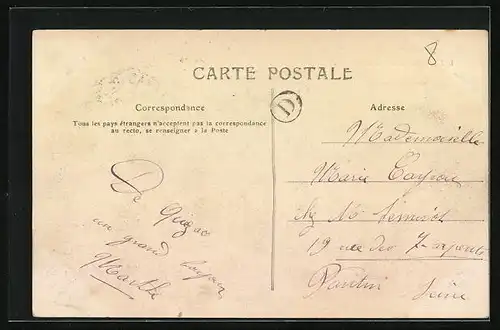 8
CARTE POSTALE
Correspondance
Tous les pays étrangers n'acceptent pas la correspondance
au recto, se renseigner à la Poste
D
De Quézac
un grand
Marthe
Adresse
Mademoiselle
Marie
chez Mr
19 rue des 7 arpents
Pantin Seine